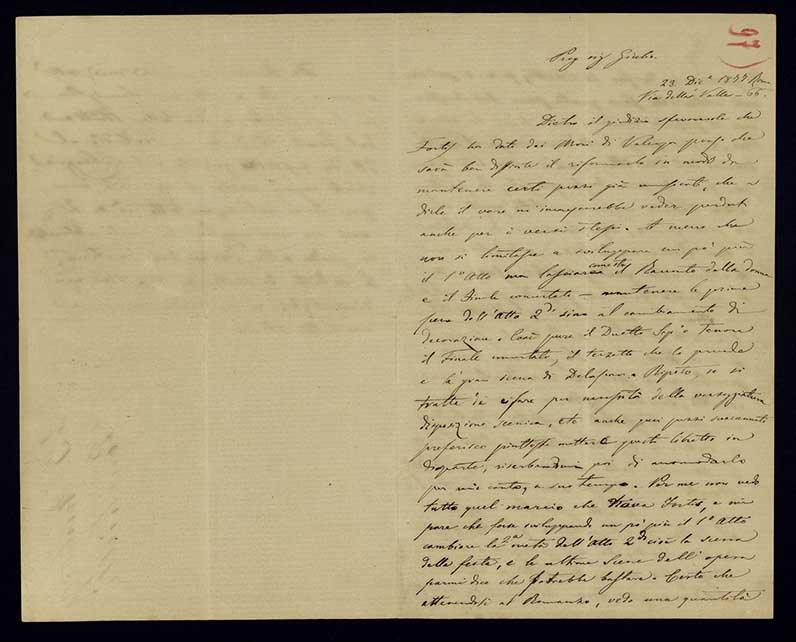 97
Preg sig Giulio.
23. Dic.e 1877 Roma
Via della Valle - 66.
Dietro il giudizio sfavorevole che
Fortis ha dato dei Mori di Valenza penso che
sarà ben difficile il riformarlo in modo da
mantenere certi pezzi già musicati, che a
dirle il vero mi increscerebbe veder perduti
anche per i versi stessi. A meno che
non si limitasse a sviluppare un pò più
il 1º Atto ma lasciare il Racconto della donna
e il Finale concertato - mantenere la prima
dell'Atto 2do sino al cambiamento di
decorazione. Così pure il Duetto Sop.o Tenore
il Finale concertato, il terzetto che lo precede
e la gran scena di Delascar. Ripeto, se si
tratta di rifare per necessità della verseggiatura
disposizione scenica, etc anche quei pezzi
preferisco piuttosto mettere questo libretto in
disparte, riserbandomi poi di accomodarlo
per mio conto, a suo tempo. Per me non vedo
tutto quel marcio che trova Fortis, e mi
pare che forse sviluppando un pò più il 1º Atto
cambiare la 2a metà dell'Atto 2do cioè la scena
della festa, e le ultime scene dell'opera
parmi dico che potrebbe bastare. Certo che
attenendosi al Romanzo, vedo una quantità